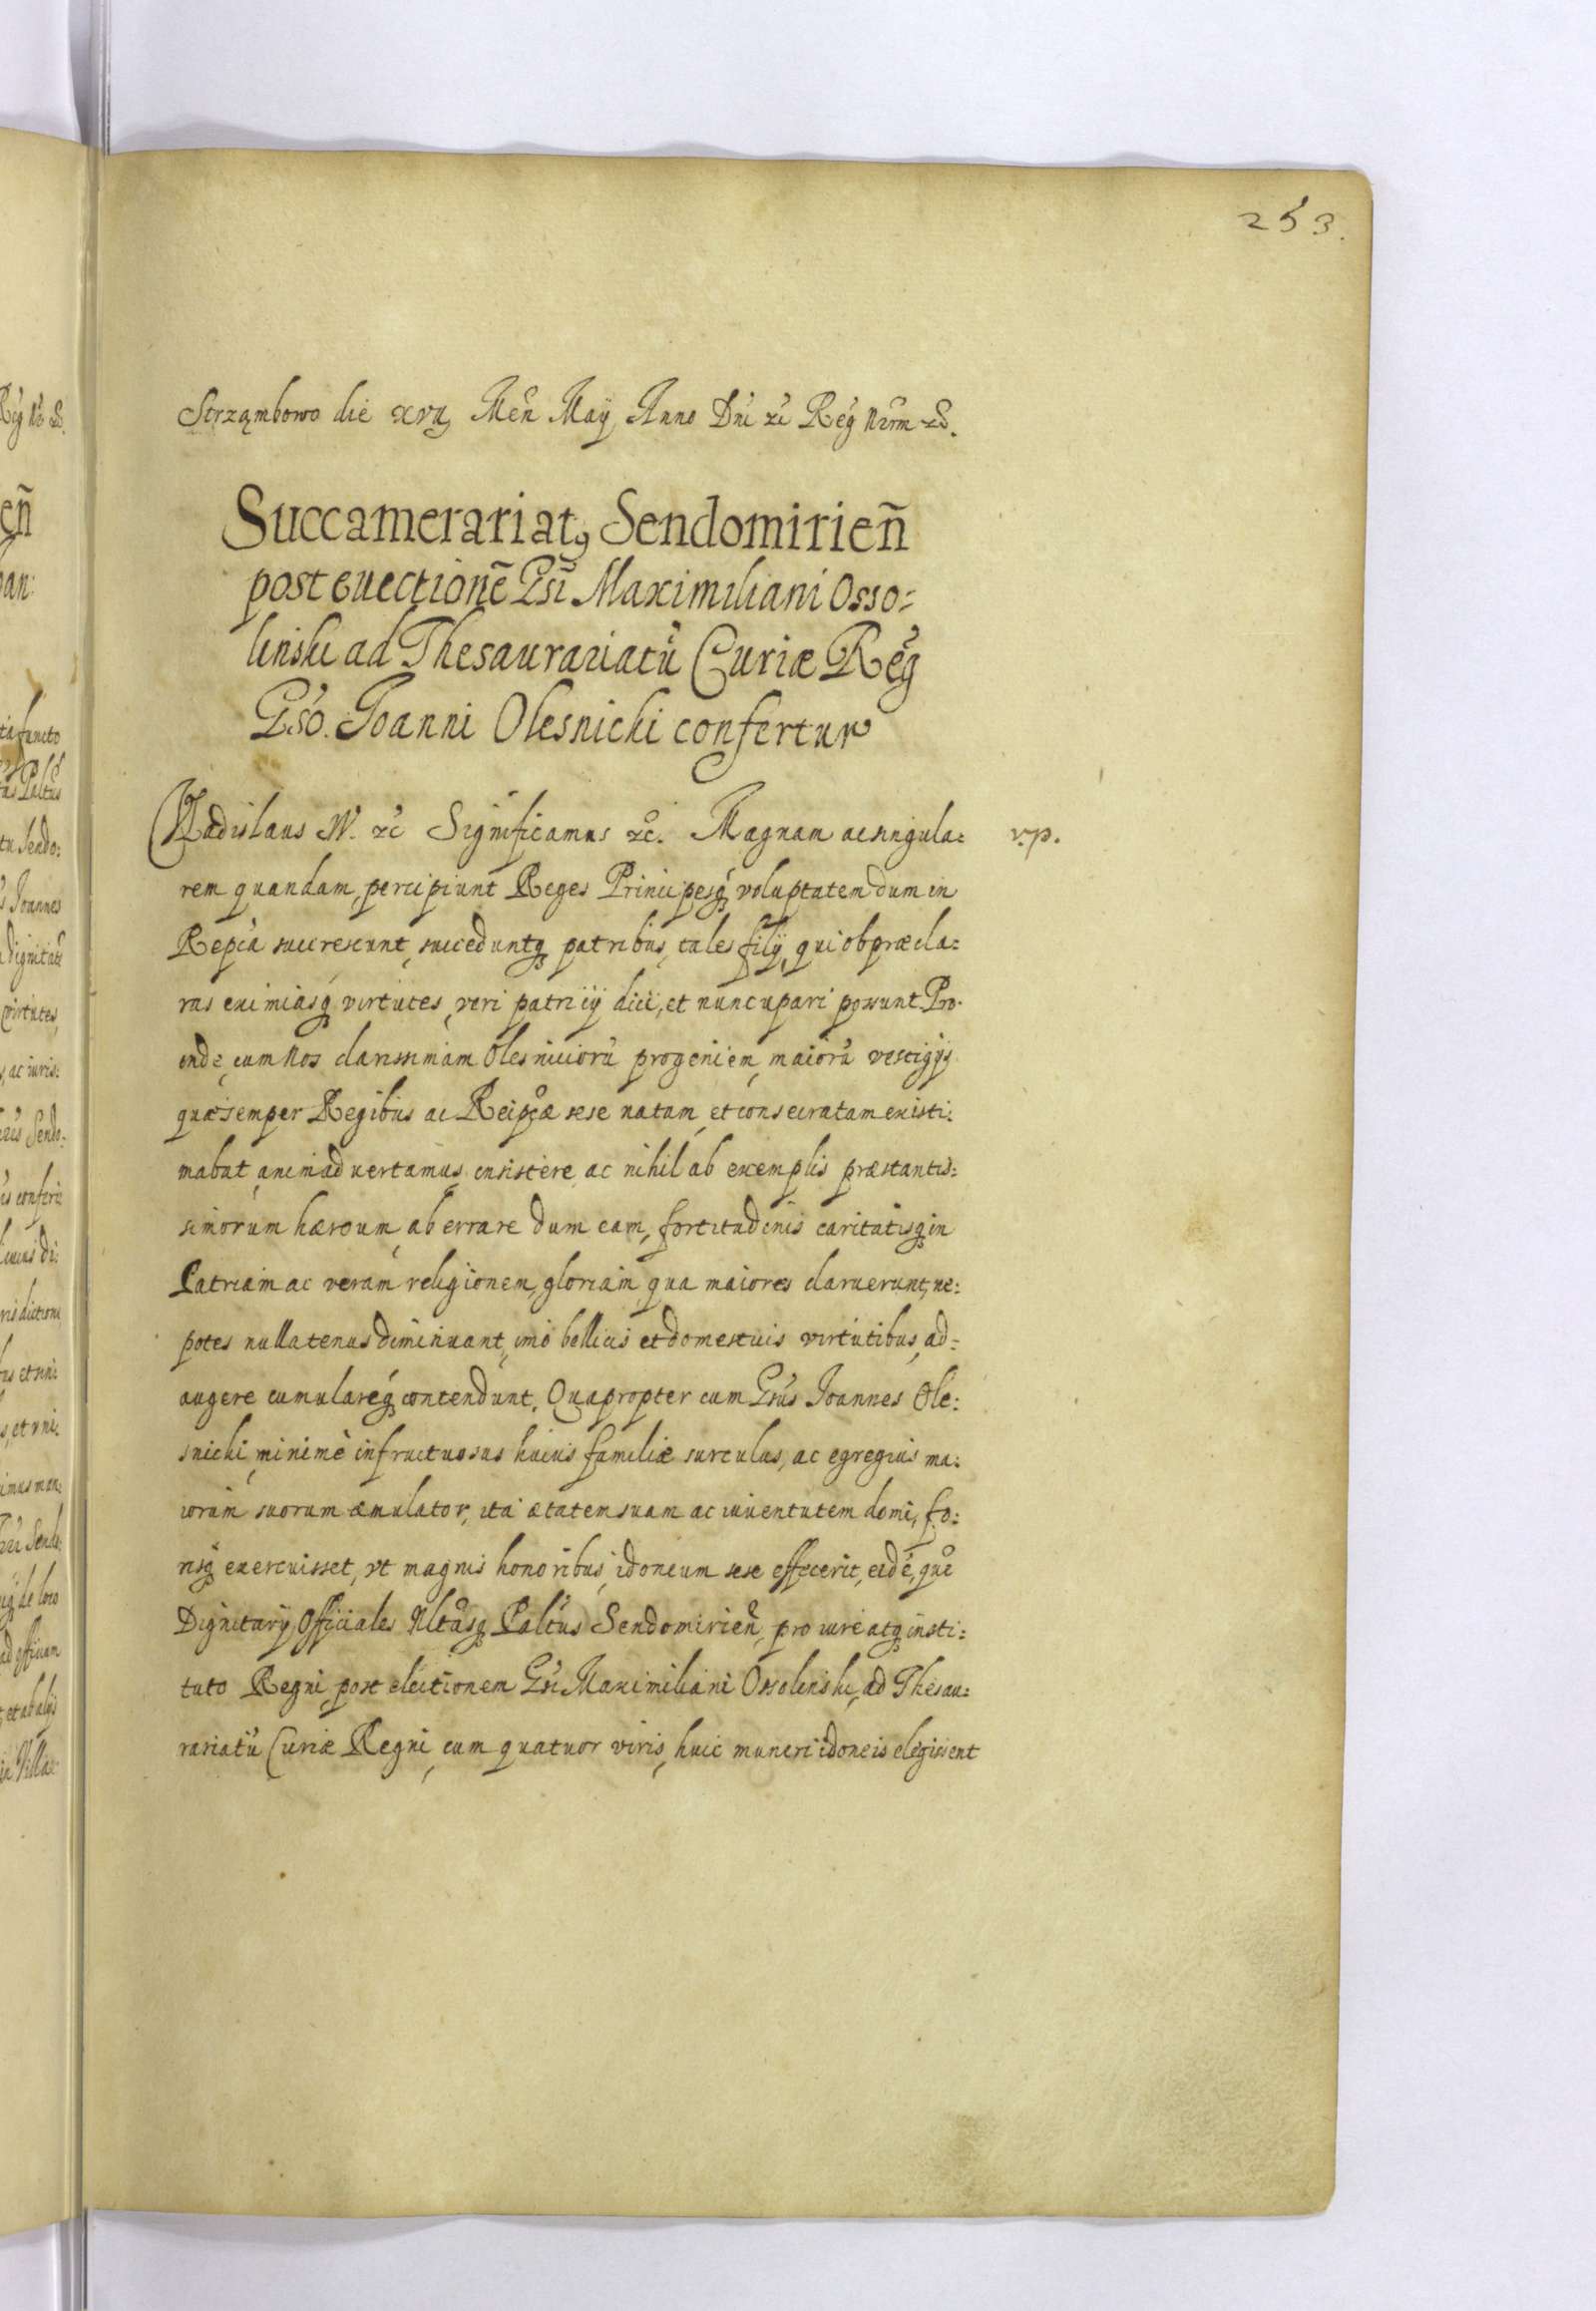 253.
Strząmbowo die xvij Meñ Maij Anno Dni zc Reg Nrm zc.
Succamerariatꝯ Sendomirieñ
post euectionẽ Gsi Maximiliani Osso=
linski ad Thesaurariatũ Curiæ Reg
Gso. Joanni Olesnicki confertur
Vladislaus IV. zc Significamus zc. Magnam ac singula= v.p.
rem quandam, percipiunt Reges Principesq́ꝫ voluptatem dum in
Repca succrescunt, succeduntqꝫ patribus, tales filij, qui ob præcla=
ras eximiasq́ꝫ virtutes, veri patricij dici, et nuncupari possunt. Pro-
inde, cum Nos clarissimam Olesniciorũ progeniem, maiorũ vestigijs
quæ semper Regibus ac Reipcæ sese natam, et consecratam existi:
mabat, animaduertamus, insistere, ac nihil ab exemplis præstantis:
simorum hæroum, aberrare dum eam, fortitudinis caritatisqꝫ in
Patriam ac veram religionem, gloriam, qua maiores claruerunt, ne:
potes nullatenus diminuant, imò bellicis et domesticis virtutibus, ad=
augere cumulareq́ꝫ contendunt. Quapropter cum Gsus Joannes Ole:
snicki, minimè infructuosus huius familiæ surculus, ac egregius ma:
iorum suorum æmulator, ita ætatem suam ac iuuentutem domi, fo:
risqꝫ exercuisset, vt magnis honoribus, idoneum sese effecerit, eidé, que
Dignitarij, Officiales Nltasqꝫ Paltus Sendomirieñ, pro iure atqꝫ insti:
tuto Regni, post electionem Gsi Maximiliani Ossolinski, ad Thesau=
rariatũ Curiæ Regni, cum quatuor viris, huic muneri idoneis elegissent